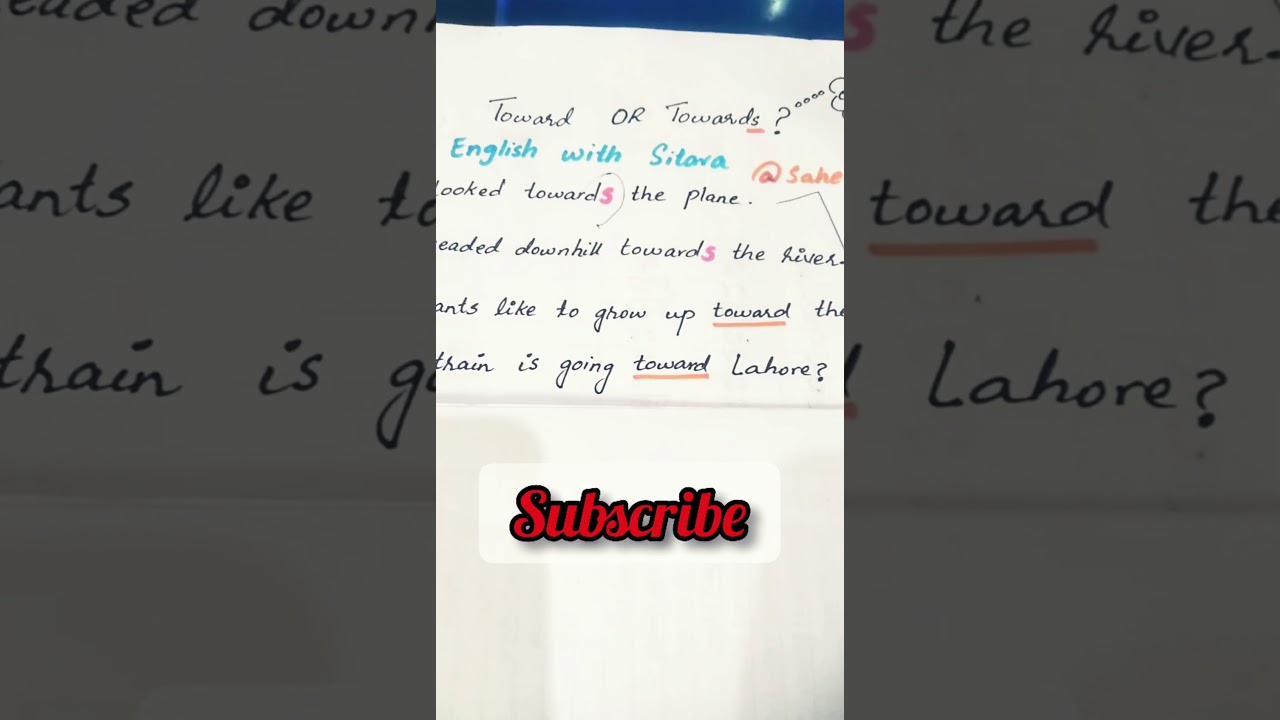 Toward OR Towards?
English with Sitara @Sahe
looked towards the plane.
eaded downhill towards the river.
ants like to grow up toward the
train is going toward Lahore?
Subscribe